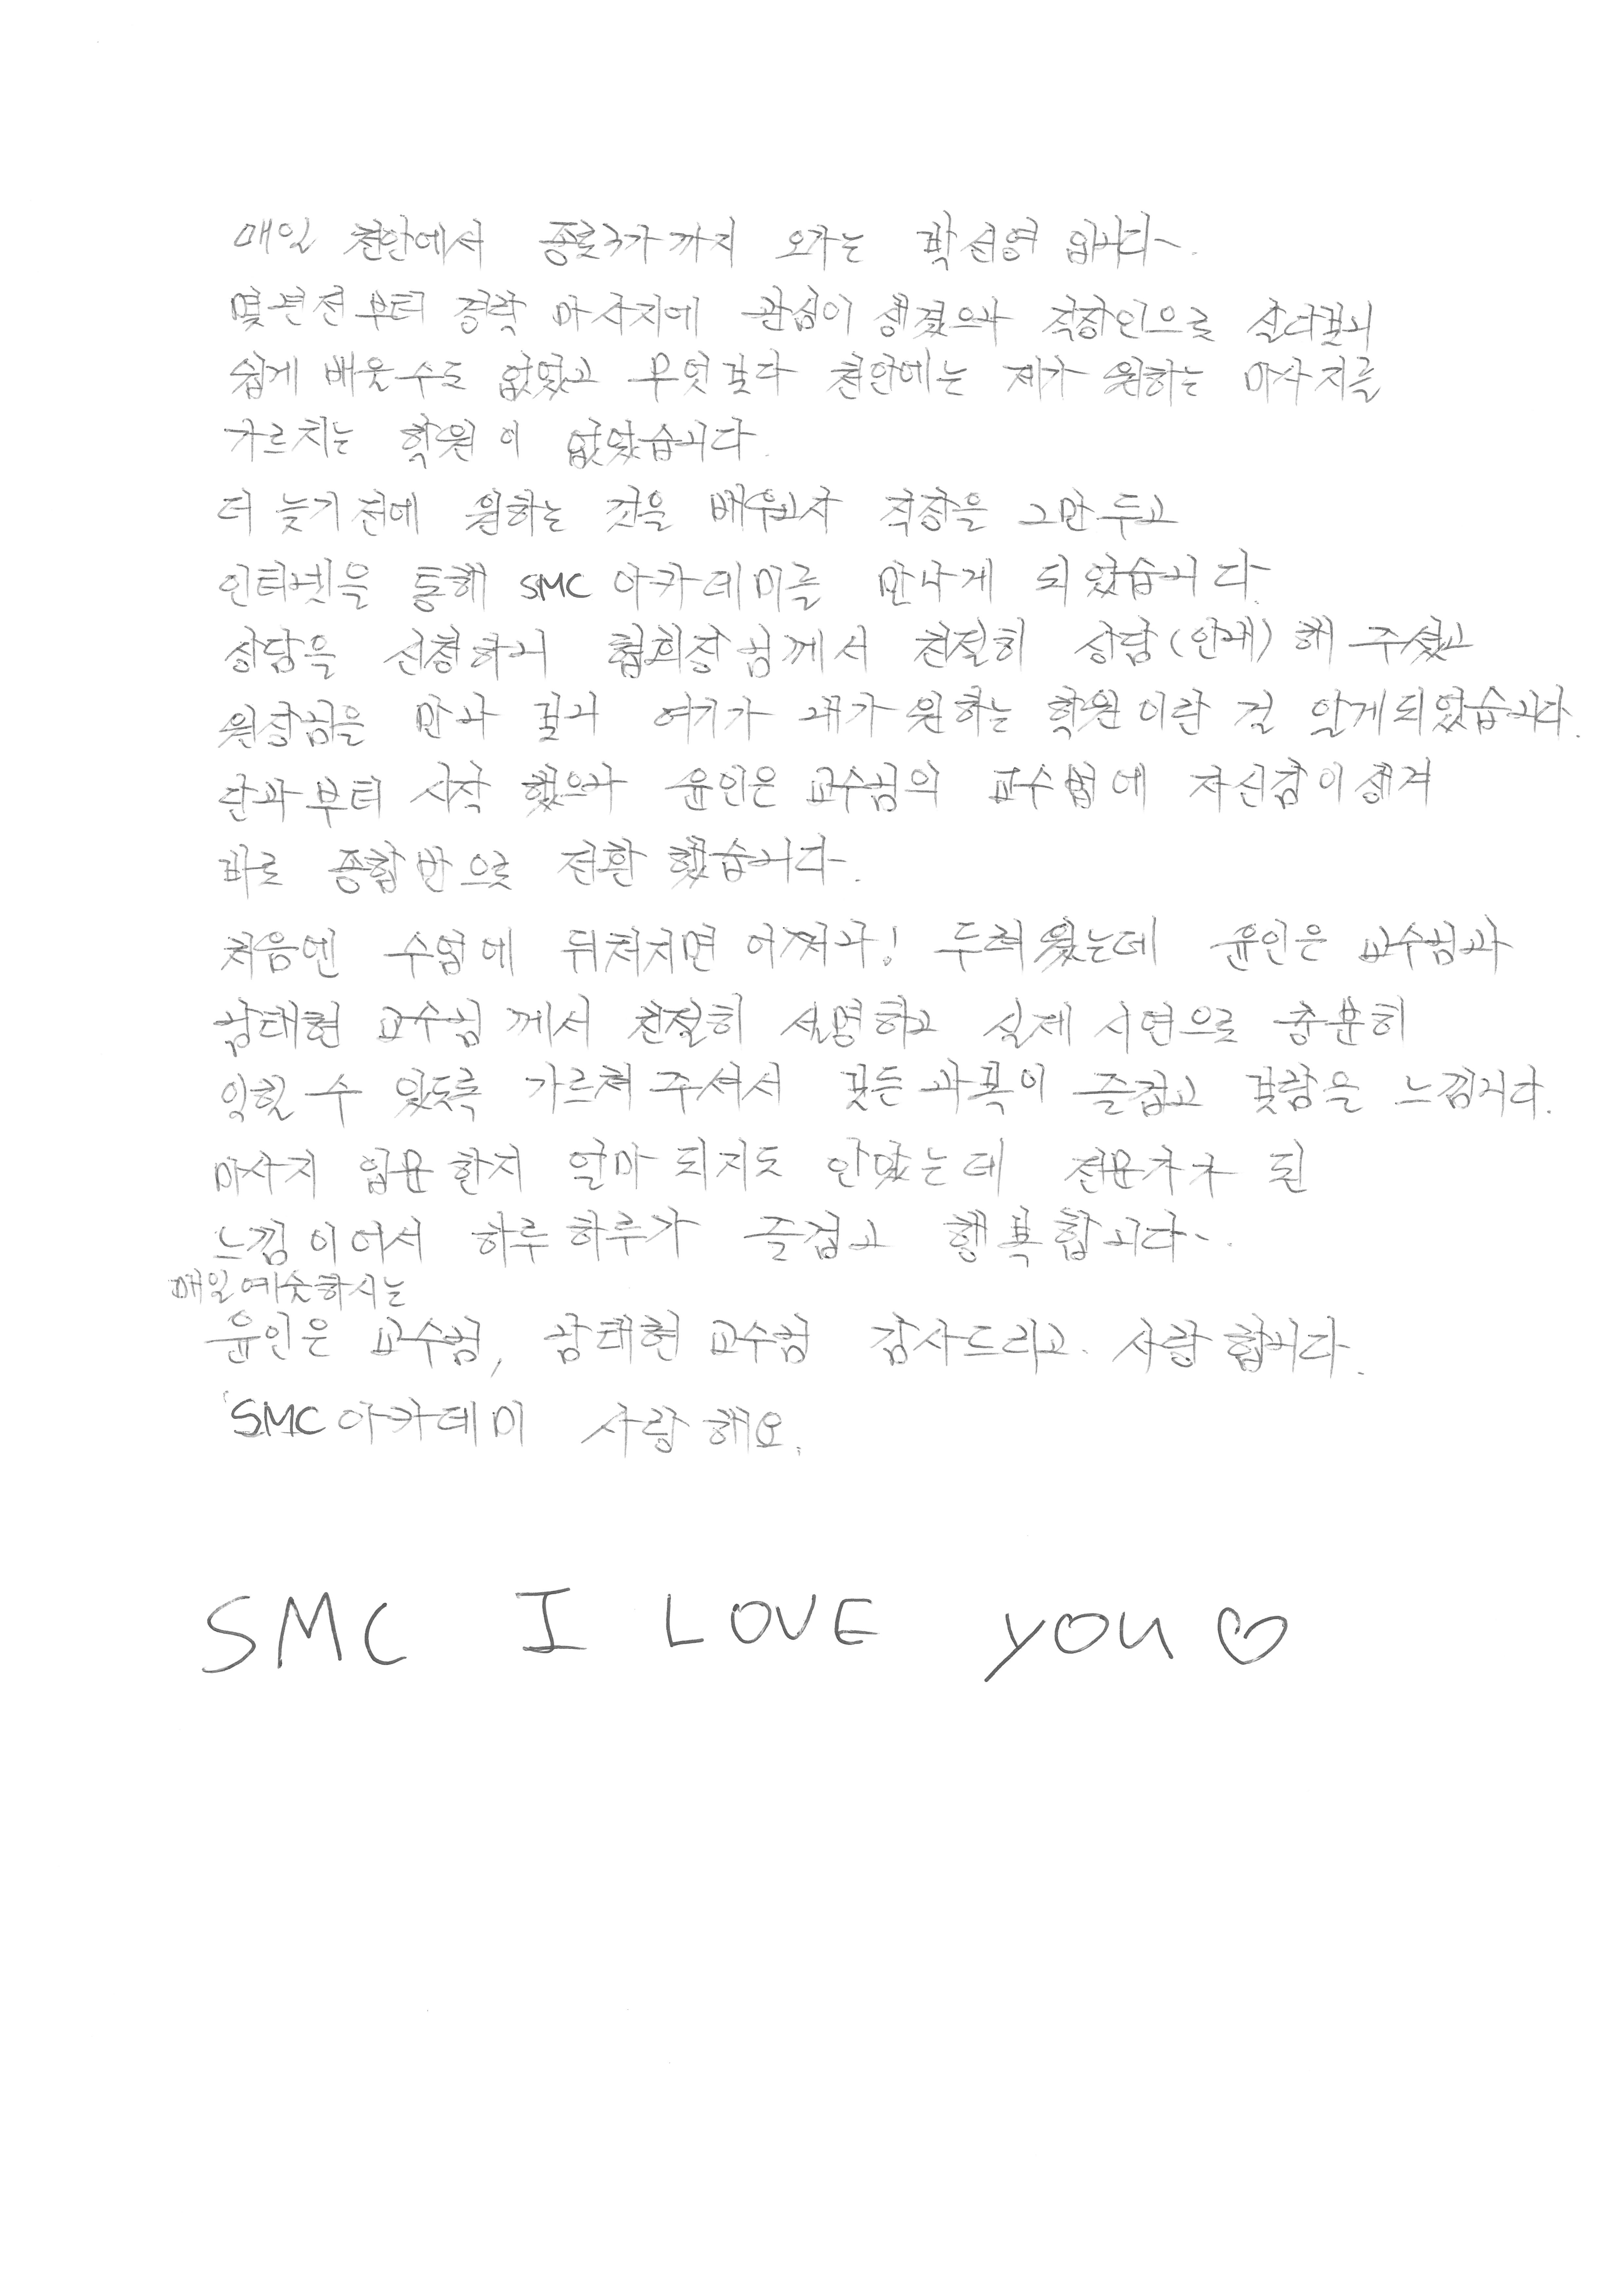 매일 천안에서 종로3가까지 오가는 박선영 입니다~.
몇년전부터 경락 마사지에 관심이 생겼으나 직장인으로 살다보니
쉽게 배울수도 없었고 무엇보다 천안에는 제가 원하는 마사지를
가르치는 학원이 없었습니다.
더 늦기전에 원하는 것을 배우고자 직장을 그만두고
인터넷을 통해 SMC 아카데미를 만나게 되었습니다.
상담을 신청하니 협회장님께서 친절히 상담(안내)해 주셨고
원장님을 만나 보니 여기가 내가 원하는 학원이란 걸 알게되었습니다.
단과부터 시작 했으나 윤인은 교수님의 교수법에 자신감이생겨
바로 종합반으로 전환 했습니다.
처음엔 수업에 뒤쳐지면 어쩌나! 두려웠는데 윤인은 교수님과
태현 교수님께서 친절히 설명하고 실제 시연으로 충분히
익힐 수 있도록 가르쳐 주셔서 모든과목이 즐겁고 보람을 느낍니다.
마사지 입문한지 얼마 되지도 안았는데 전문가가 된
느낌이어서 하루하루가 즐겁고 행복합니다~.
매일예슷하시는
윤인은 교수님, 태현 교수님 감사드리고. 사랑합니다.
SMC아카데미 사랑해요.
SMC I LOVE YOU♡